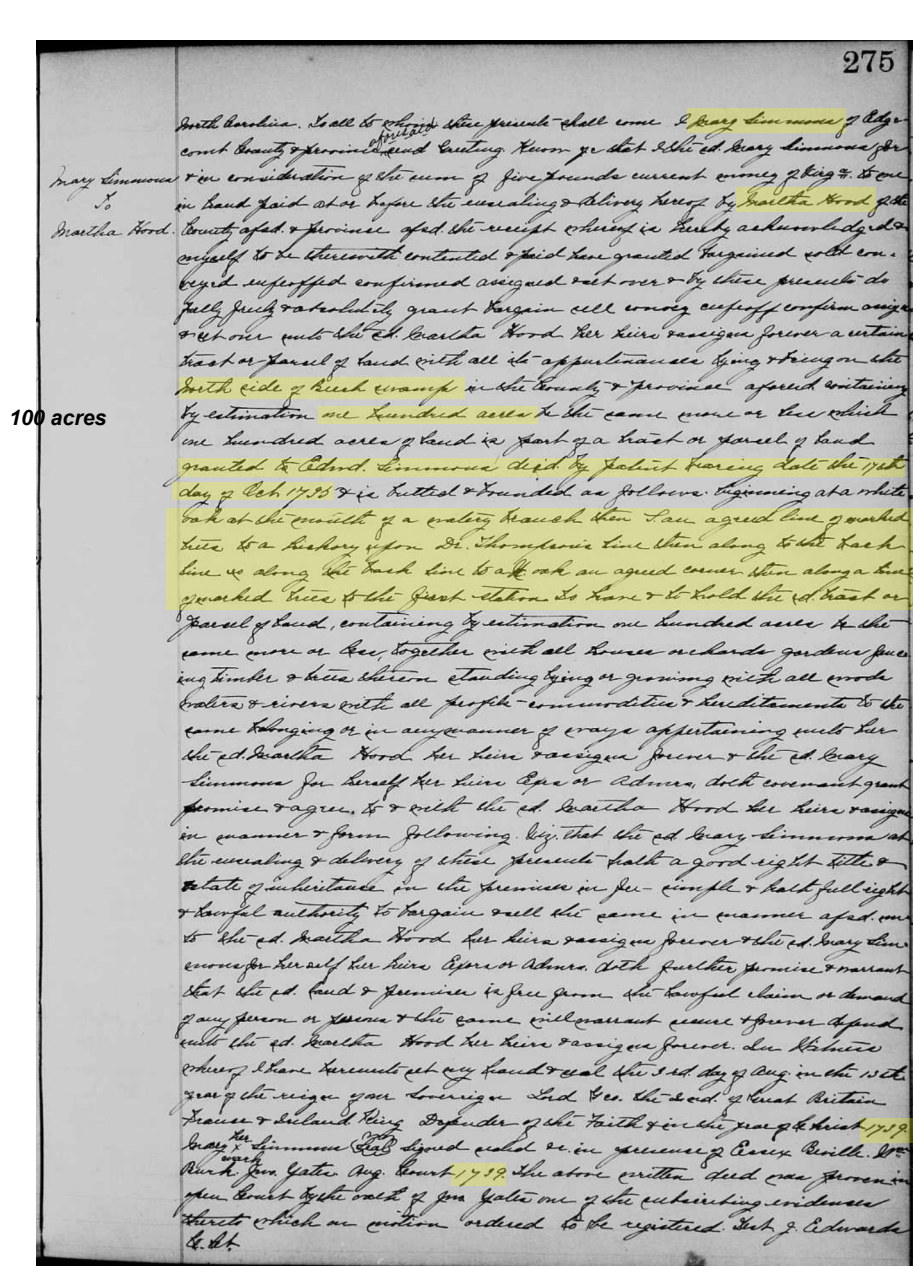 275
North Carolina. To all to whom these presents shall come I Mary Simmons of Edge-
comb County & province aforesaid send Greeting Know ye that I the sd. Mary Simmons for
Mary Simmons
To
Martha Hood.
& in consideration of the sum of five pounds current money of Virga. to me
in hand paid at or before the ensealing & delivery hereof by Martha Hood of the
County afsd. & province afsd. the receipt whereof is hereby acknowledged &
myself to be therewith contented & paid have granted bargained sold con-
veyed enfeoffed confirmed assigned & set over & by these presents do
fully freely & absolutely grant bargain sell convey enfeoff confirm assign
& set over unto the sd. Martha Hood her heirs & assigns forever a certain
tract or parcel of land with all its appurtenances lying & being on the
North side of Kush swamp in the County & province aforesd containing
100 acres
by estimation one hundred acres be the same more or less which
one hundred acres of land is part of a tract or parcel of land
granted to Edmd. Simmons decd. by patent bearing date the 17th
day of Oct 1735 & is butted & bounded as follows. beginning at a white
oak at the mouth of a watery branch then S. an agreed line of marked
trees to a hickory upon Dr. Thompson's line then along to the back
line so along the back line to a oak an agreed corner then along a line
of marked trees to the first station To have & to hold the sd. tract or
parcel of land, containing by estimation one hundred acres be the
same more or less, together with all houses orchards gardens fenc-
ing timber & trees thereon standing lying or growing with all woods
waters & rivers with all profits commodities & hereditaments to the
same belonging or in any manner of ways appertaining unto her
the sd. Martha Hood her heirs & assigns forever & the sd. Mary
Simmons for herself her heirs Exrs or Admrs. doth covenant grant
promise & agree, to & with the sd. Martha Hood her heirs & assigns
in manner & form following. Viz. that the sd Mary Simmons at
the ensealing & delivery of these presents hath a good right title &
estate of inheritance in the premises in fee-simple & hath full right
& lawful authority to bargain & sell the same in manner afsd. un
to the sd. Martha Hood her heirs & assigns forever & the sd. Mary Sim
mons for herself her heirs Exors or Admrs. doth further promise & warrant
that the sd. land & premises is free from the lawful claim or demand
of any person or persons & the same will warrant secure & forever defend
unto the sd. Martha Hood her heirs & assigns forever. In Witness
whereof I have hereunto set my hand & seal the 3d. day of Aug. in the 13th
year of the reign of our Sovereign Lord Geo. the 2nd. of Great Britain
France & Ireland King Defender of the Faith & in the year of Christ 1739.
Mary her x mark Simmons (Seal) signed seald &c. in presence of Essex Beville. Wm.
Rurk. Jno. Yates. Aug. Court 1739. The above written deed was proven in
open Court by the oath of Jno Yates one of the subscribing evidences
thereto which on motion ordered to be registered. Test J. Edwards
C. Ct.